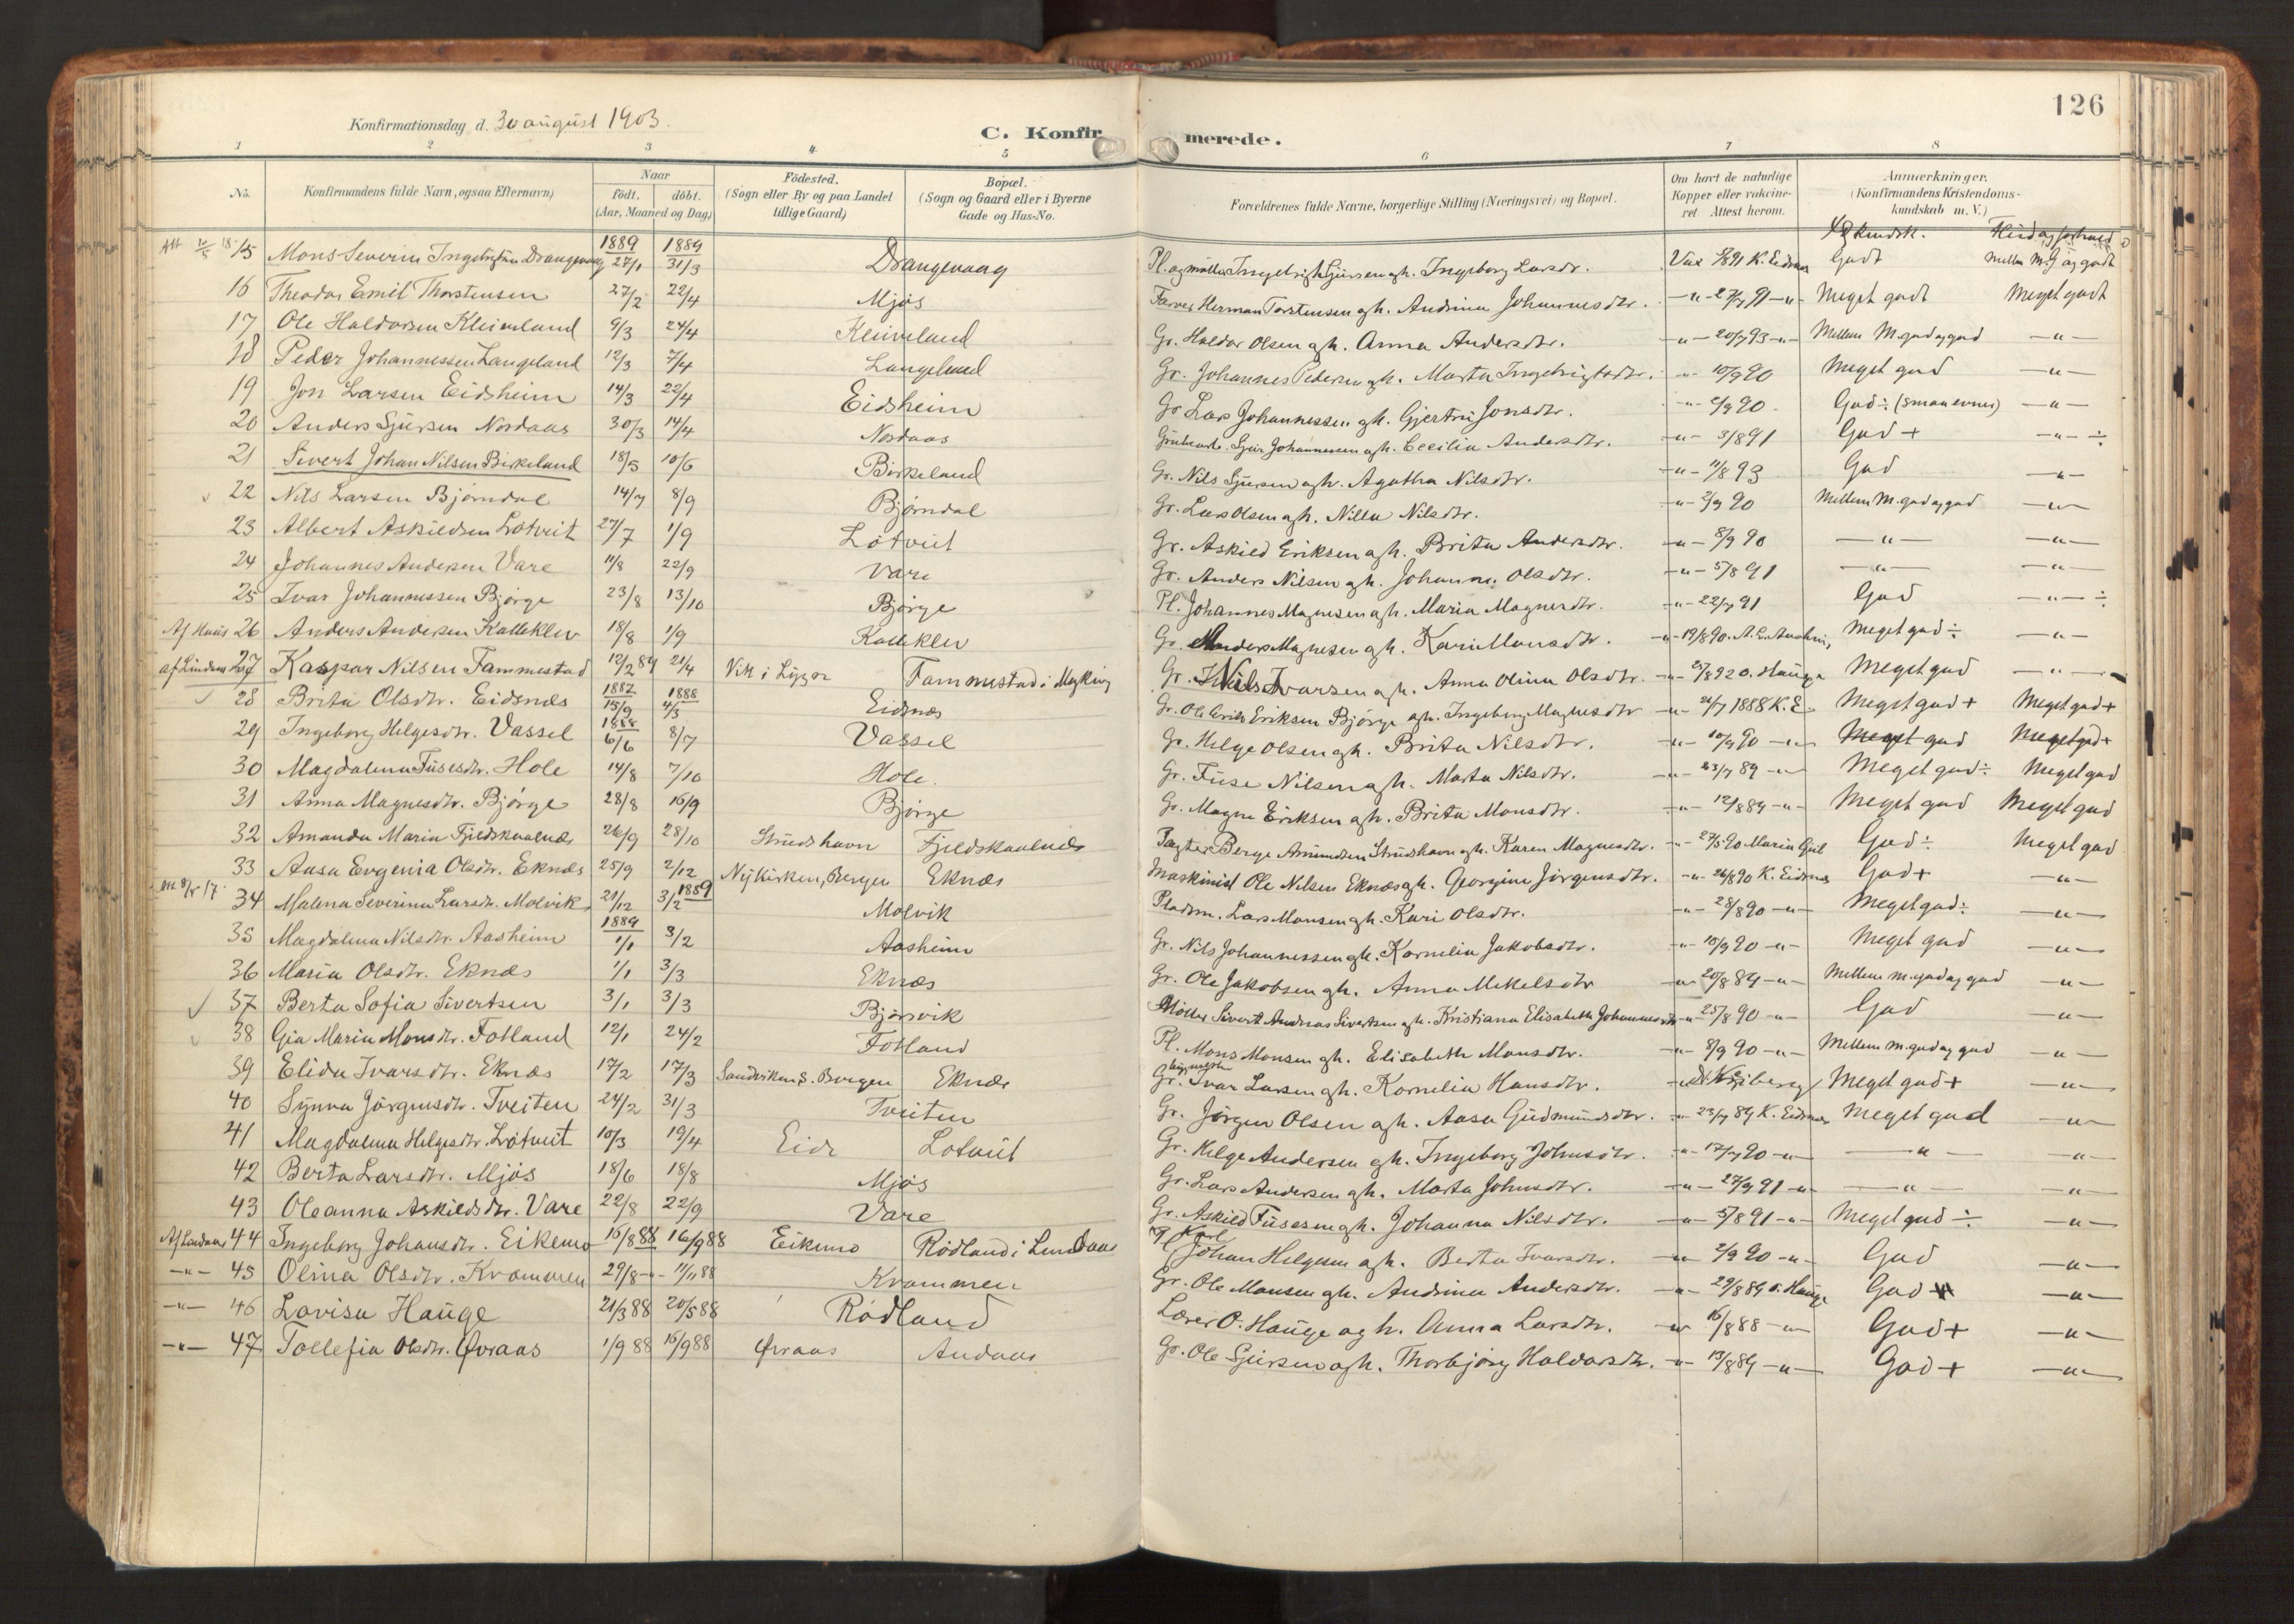 126
Konfirmationsdag d. 30 august 1903.
C. Konfirmerede.
1 2 3 4 5 6 7 8
No. Konfirmandens fulde Navn, ogsaa Efternavn) Naar födt. döbt. (Aar, Maaned og Dag) Födested. (Sogn eller By og paa Landet tillige Gaard) Bopæl. (Sogn og Gaard eller i Byerne Gade og Hus-No. Forældrenes fulde Navne, borgerlige Stilling (Næringsvei) og Bopæl. Om havt de naturlige Kopper eller vakcineret Attest herom. Anmærkninger. (Konfirmandens Kristendomskundskab m. V.)
15 Mons Severin Ingebrigtsen Drangevaag 1889 27/1 1889 31/3 Drangevaag Pl. og møller Ingebrigt Sjursen og h. Ingeborg Larsdr. K. Eidsnes Godt
16 Theodor Emil Thorstensen 27/2 22/4 Mjøs Herman Torstensen og h. Andrina Johannesdtr. -"- 27/9 91 -"- Meget godt Meget godt
17 Ole Haldorsen Kleiveland 9/3 24/4 Kleiveland Gr. Haldor Olsen og h. Anna Andersdtr. -"- 20/9 93 -"- Mellem M. god og god -"-
18 Peder Johannessen Langeland 12/3 7/4 Langeland Gr. Johannes Pedersen og h. Marta Ingebrigtsdtr. -"- 10/9 90 Meget god -"-
19 Jon Larsen Eidsheim 14/3 22/4 Eidsheim Gr. Lars Johannessen og h. Gjertru Jonsdtr. -"- 2/9 90 God ÷ (smaa evner) -"-
20 Anders Sjursen Nordaas 30/3 14/4 Nordaas Sjur Johannessen og h. Cecilia Andersdtr. -"- 3/8 91 God + -"- ÷
21 Sivert Johan Nilsen Birkeland 18/5 10/6 Birkeland Gr. Nils Sjursen og h. Agatha Nilsdtr. -"- 11/8 93 God -"-
22 Nils Larsen Bjørndal 14/7 8/9 Bjørndal Gr. Lars Olsen og h. Nilla Nilsdtr. -"- 2/9 90 Mellem M. god og god -"-
23 Albert Askildsen Løtveit 27/7 1/9 Løtveit Gr. Askild Eriksen og h. Brita Andersdtr. -"- 8/9 90 -"- -"-
24 Johannes Andersen Vare 11/8 22/9 Vare Gr. Anders Nilsen og h. Johanna Olsdtr. -"- 5/8 91 -"- -"-
25 Ivar Johannessen Bjørge 23/8 13/10 Bjørge Pl. Johannes Magnesen og h. Maria Magnesdtr. -"- 22/9 91 God -"- ÷
Af Haus 26 Anders Andersen Kalleklev 18/8 1/9 Kalleklev Gr. Anders Magnesen og h. Kari Monsdtr. -"- 19/8 90 Meget god ÷ -"-
af Lindaas 27 Kaspar Nilsen Fammestad 12/2 89 21/4 Vik i Lygra Fammestad i Gr. Nils Ivarsen og h. Anna Olina Olsdtr. -"- O. Hauge Meget god -"-
28 Brita Olsdtr. Eidsnes 1887 15/9 1888 4/3 Eidsnes Eriksen Bjørge og h. Ingeborg Magnesdtr -"- 1888 K. E. Meget god + Meget god +
29 Ingeborg Helgesdtr. Vassel 1888 6/6 8/7 Vassel Gr. Helge Olsen og h. Brita Nilsdtr. -"- 10/9 90 -"- Meget god Meget god +
30 Magdalena Fusesdtr. Hole 14/8 7/10 Hole. Gr. Fuse Nilsen og h. Marta Nilsdtr. -"- 23/7 89 -"- Meget god ÷ Meget god
31 Anna Magnesdtr. Bjørge 28/8 16/9 Bjørge Gr. Magne Eriksen og h. Brita Monsdtr. -"- 12/8 89 -"- Meget god Meget god
32 Amanda Maria Fjeldskaalnes 26/9 28/10 Strudshavn Fjeldskaalnes Berge Amundsen Strudshavn og h. Karen Magnesdtr. -"- God ÷ Meget god
33 Aasa Evgenia Olsdtr. Eknæs 25/9 2/12 Nykirken, Bergen Eknæs Maskinist Ole Nilsen Eknæs og h. Georgine Jørgensdtr. -"- 26/8 90 K. Eidsnes God + -"-
34 Malena Severina Larsdtr. Molvik 21/12 3/2 1889 Molvik Pladsm. Lars Monsen og h. Kari Olsdtr. -"- 28/8 90 -"- Meget god ÷ -"-
35 Magdalena Nilsdtr. Aasheim 1889 1/1 3/2 Aasheim Gr. Nils Johannessen og h. Kornelia Jakobsdtr. -"- 10/9 90 -"- Meget god -"-
36 Maria Olsdtr. Eknæs 1/1 3/3 Eknæs Gr. Ole Jakobsen og h. Anna Mikelsdtr -"- 20/8 89 -"- Mellem m. god og god -"-
37 Berta Sofia Sivertsen 3/1 3/3 Bjørsvik Møller Sivert Andreas Sivertsen og h. Kristiana Elisabeth Johannesdtr -"- 25/8 90 -"- God -"-
38 Gia Maria Monsdtr. Fotland 12/1 24/2 Fotland Pl. Mons Monsen og h. Elisabeth Monsdtr. -"- 8/9 90 -"- Mellem m. god og god -"-
39 Elida Ivarsdtr. Eknæs 17/2 17/3 Sandviken S. Bergen Eknæs Gr. Ivar Larsen og h. Kornelia Hansdtr. Meget god + -"-
40 Synva Jørgensdtr. Tveiten 24/2 31/3 Tveiten Gr. Jørgen Olsen og h. Aasa Gudmundsdtr. -"- 23/7 89 K. Eidsnes Meget god -"-
41 Magdalena Helgesdtr. Løtveit 10/3 19/4 Eide Løtveit Gr. Helge Andersen og h. Ingeborg Johnsdtr. -"- 17/9 90 -"- -"- -"-
42 Berta Larsdtr. Mjøs 18/6 18/8 Mjøs Gr. Lars Andersen og h. Marta Johnsdtr. -"- 27/9 91 -"- -"- -"-
43 Oleanna Askildsdtr. Vare 22/8 22/9 Vare Gr. Askild Fusesen og h. Johanna Nilsdtr. -"- 5/8 91 -"- Meget god ÷ -"-
Af Lindaas 44 Ingeborg Johansdtr. Eikemo 15/8 88 16/9 88 Eikemo Rødland i Lindaas Karl Johan Helgesen og h. Berta Ivarsdtr. -"- 2/9 90 -"- God -"-
-"- 45 Olina Olsdtr. Krommen 29/8 -"- 11/11 88 Krammen Gr. Ole Monsen og h. Andrina Andersdtr. -"- 29/8 89 O. Hauge God -"-
-"- 46 Lovisa Hauge 21/3 88 20/5 88 Rødland Lærer O. Hauge og h. Anna Larsdtr. -"- 16/8 88 -"- God + -"-
-"- 47 Tollefia Olsdtr. Qvraas 1/9 88 16/9 88 Qvraas Andaas Gr. Ole Sjursen og h. Thorbjørg Haldorsdtr. -"- 13/8 89 -"- God + -"-